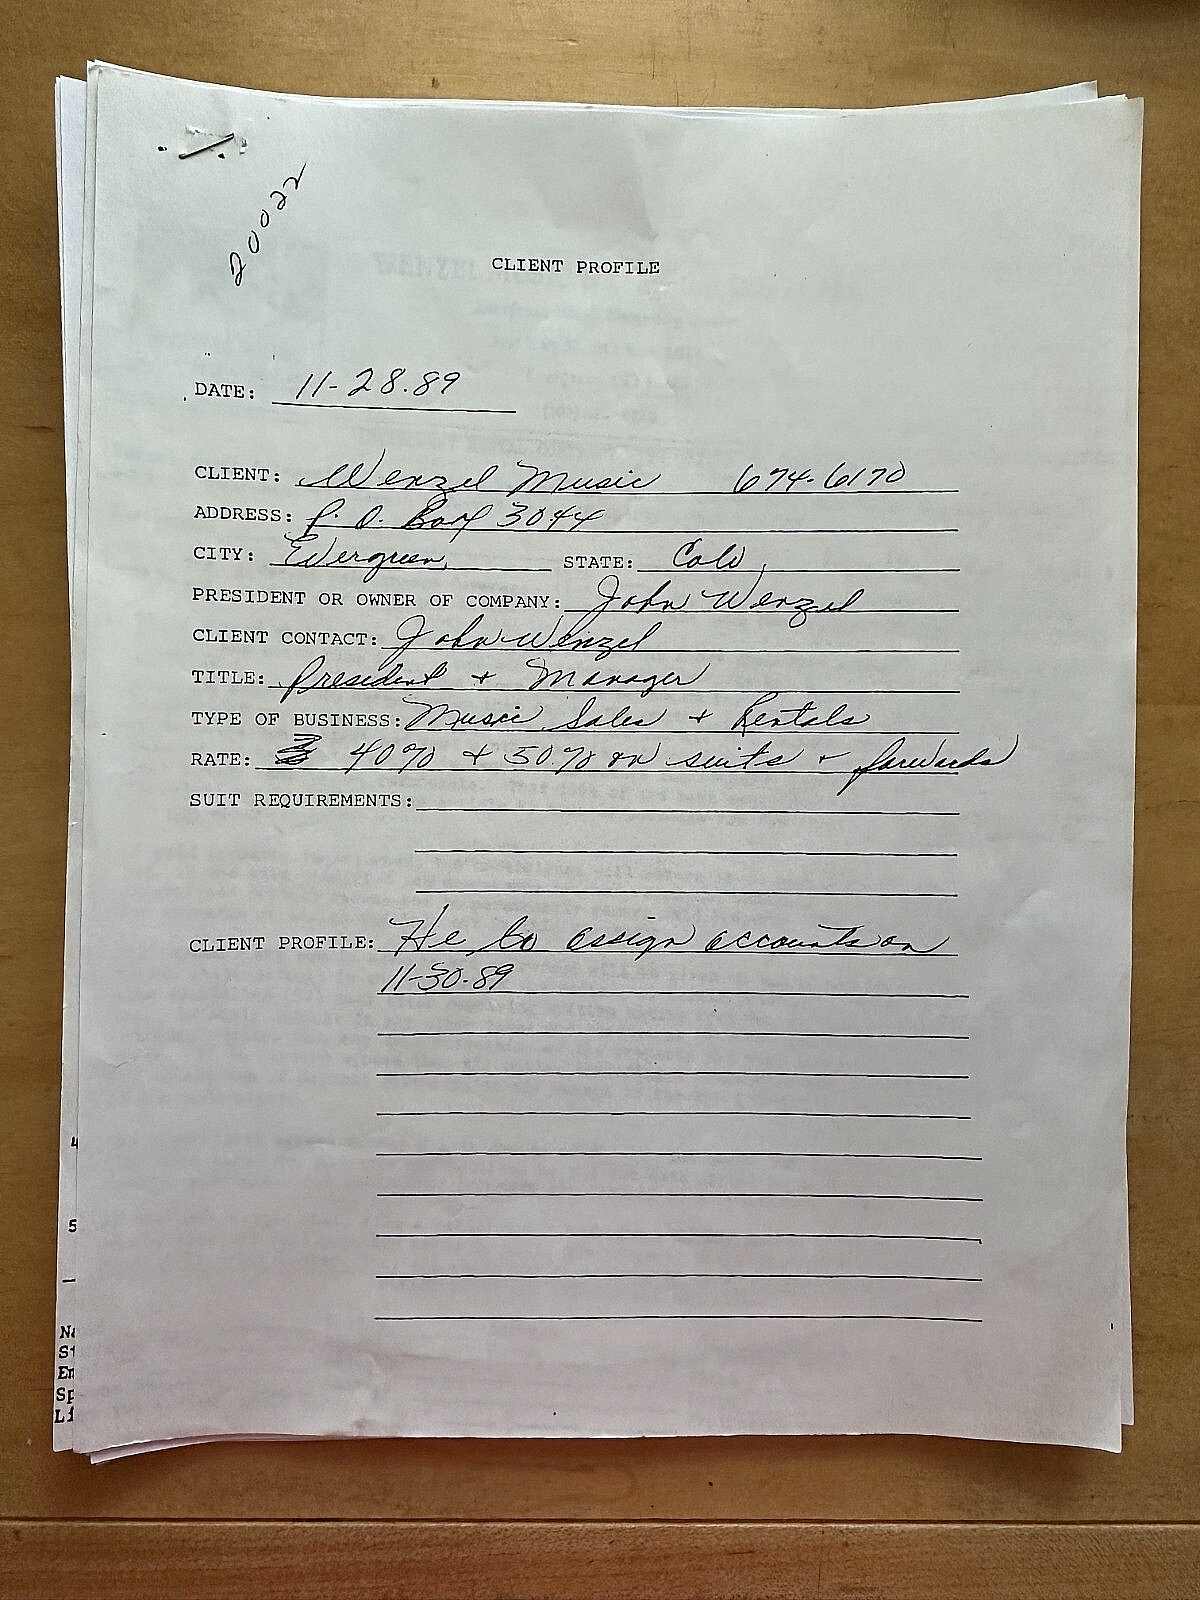 20022
CLIENT PROFILE
DATE: 11-28.89
CLIENT: Wenzel Music 674-6170
ADDRESS: P.O. Box 3044
CITY: Evergreen, STATE: Colo,
PRESIDENT OR OWNER OF COMPANY: John Wenzel
CLIENT CONTACT: John Wenzel
TITLE: President + Manager
TYPE OF BUSINESS: Music Sales + Rentals
RATE: 40% + 50% on suits + forwards
SUIT REQUIREMENTS:
CLIENT PROFILE: He to assign accounts on
11-30-89
4
5
St
En
Sp
Li